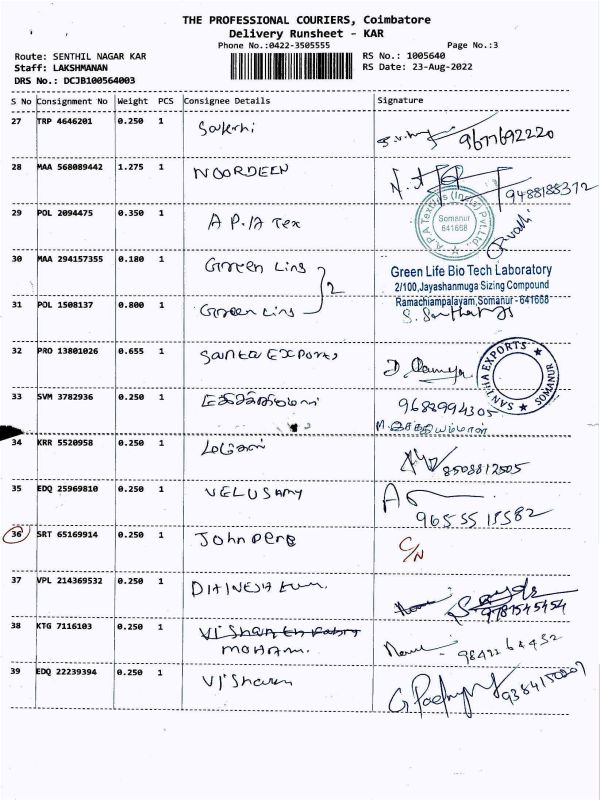 THE PROFESSIONAL COURIERS, Coimbatore
Delivery Runsheet - KAR
Phone No.:0422-3505555 Page No.:3
Route: SENTHIL NAGAR KAR RS No.: 1005640
Staff: LAKSHMANAN RS Date: 23-Aug-2022
DRS No.: DCJB100564003
S No Consignment No Weight PCS Consignee Details Signature
27 TRP 4646201 0.250 1 9677692220
28 MAA 568089442 1.275 1 NOORDEEN 9488188372
29 POL 2094475 0.350 1 A P.A Tex
A.P.A Textiles (India) Pvt.Ltd.
Somanur
641668
30 MAA 294157355 0.180 1 Green Lins
2
Green Life Bio Tech Laboratory
2/100,Jayashanmuga Sizing Compound
Ramachiampalayam,Somanur - 641668
31 POL 1508137 0.800 1 Green Lins
32 PRO 13801026 0.655 1 Santa Exports
SANTHA EXPORTS ★ SOMANUR ★
33 SVM 3782936 0.250 1 9688994305
34 KRR 5520958 0.250 1 8508812505
35 EDQ 25969810 0.250 1 VELUSAMY
9655515582
36 SRT 65169914 0.250 1 C/N
37 VPL 214369532 0.250 1 9787545454
38 KTG 7116103 0.250 1
39 EDQ 22239394 0.250 1 Visharan